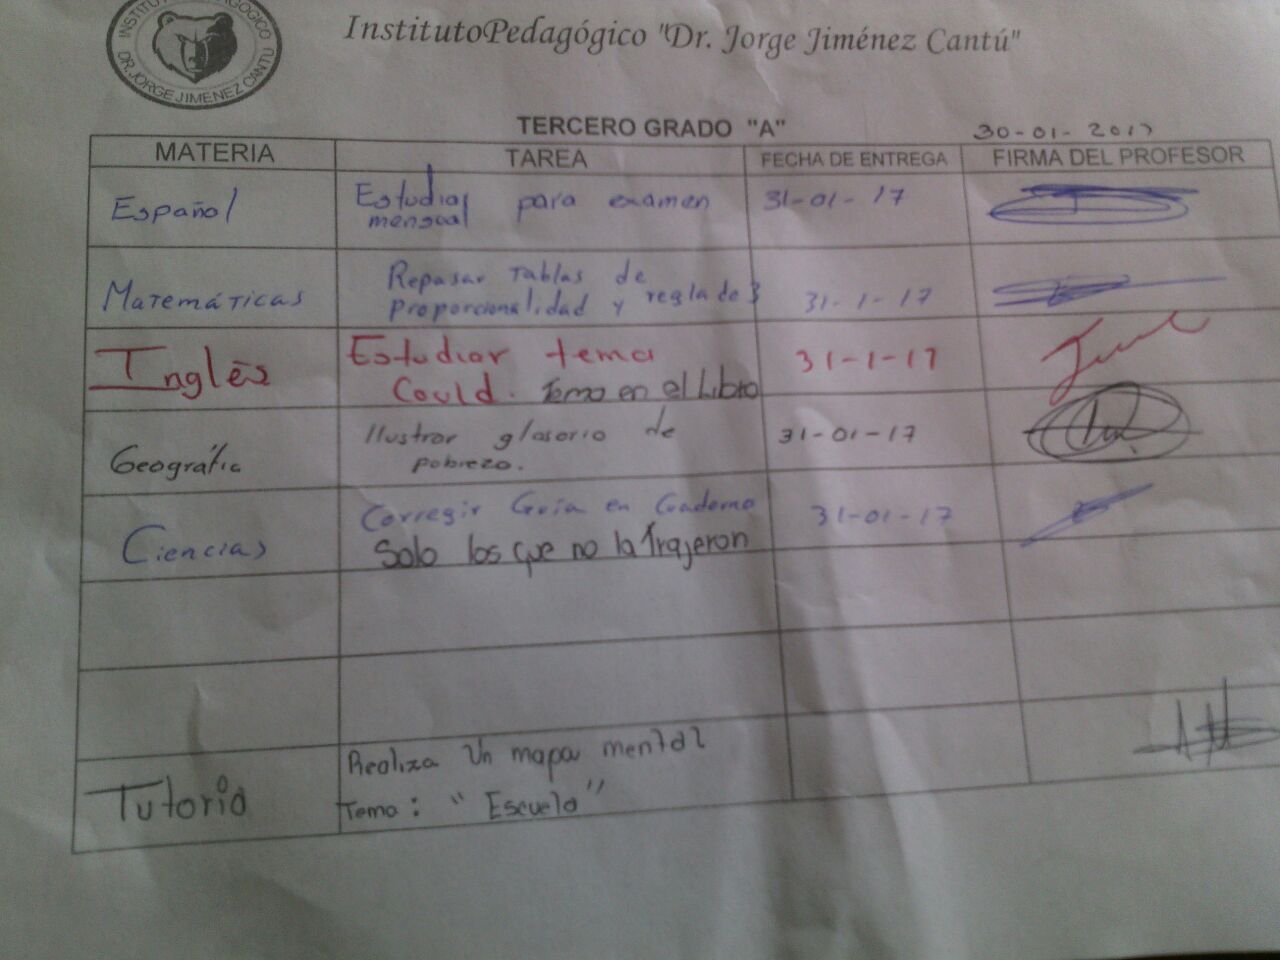 INSTITUTO PEDAGOGICO
DR. JORGE JIMENEZ CANTÚ
InstitutoPedagógico "Dr. Jorge Jiménez Cantú"
TERCERO GRADO "A" 30-01-2017
MATERIA TAREA FECHA DE ENTREGA FIRMA DEL PROFESOR
Español Estudiar para examen 31-01-17
mensual
Matemáticas Repasar Tablas de
proporcionalidad y regla de 3 31-1-17
Inglés Estudiar tema 31-1-17
Could. Tema en el Libro
Geográfia Ilustrar glosario de 31-01-17
pobreza.
Ciencias Corregir Guía en Cuaderno 31-01-17
Solo los que no la Trajeron
Tutoria Realiza Un mapa mental
Tema: "Escuela"